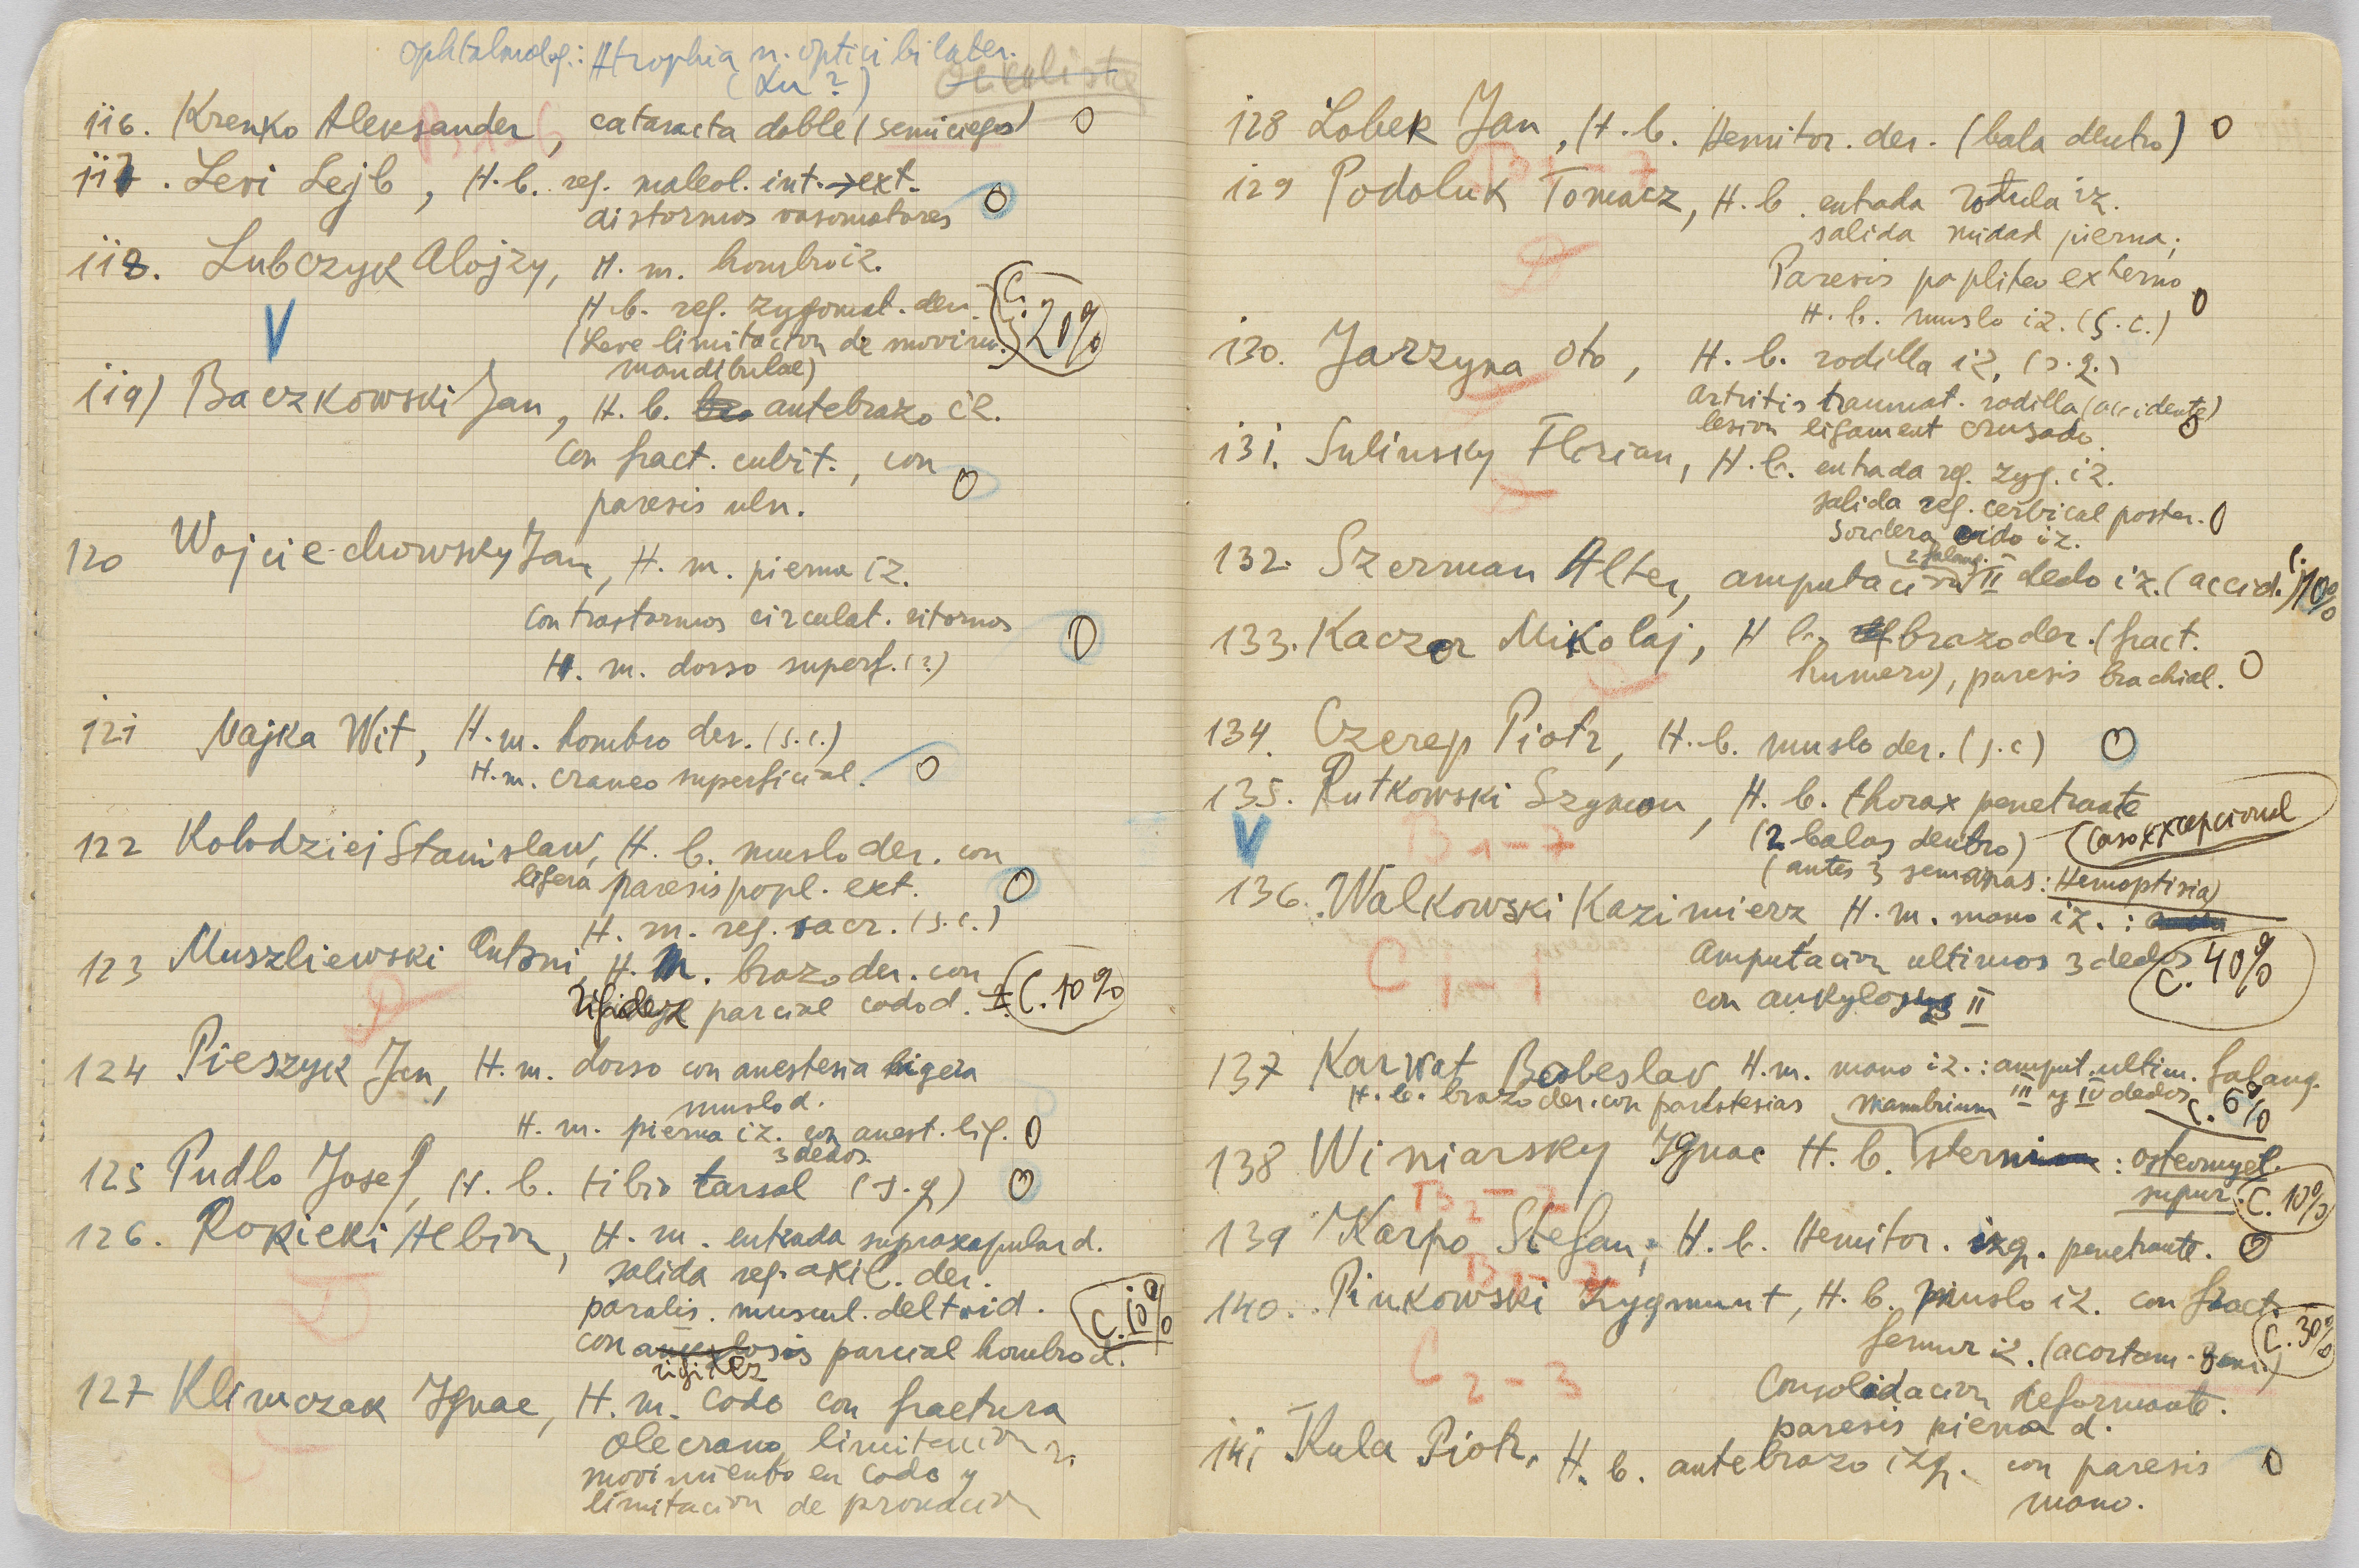 Ophtalmolog.: Atrophia n. optici bilater.
(Lu?) Oculista
116. Krenko Aleksander, cataracta doble (semiciego) 0
117. Levi Lejb, H. b. reg. maleol. int. → ext.
distormos vasomotores 0
118. Lubczyk Alojzy, H. m. hombro iz.
H. b. reg. zygomat. der.
V (Leve limitacion de movim. C. 20%
mandibulae)
119) Baczkowski Jan, H. b. antebrazo iz.
con fract. cubit., con
paresis uln. 0
120 Wojciechowsky Jan, H. m. pierna iz.
con trastornos circulat. 0
H. m. dorso superf. (?)
121 Majka Wit, H. m. hombro der. (s.c.)
H. m. craneo superficial. 0
122 Kolodziej Stanislaw, H. b. muslo der. con
ligera paresis popl. ext. 0
H. m. reg. sacr. (s.c.)
123 Muszliewski Antoni, H. m. brazo der. con
rigideze parcial codo d. C. 10%
124 Pieszyk Jan, H. m. dorso con anestesia ligera
muslo d.
H. m. pierna iz. con anest. lig. 0
3 dedos
125 Pudlo Josef, H. b. tibio tarsal (s.q) 0
126. Rokicki Albin, H. m. entrada supraxapular d.
salida reg. axil. der.
paralis. muscul. deltoid. C. 10%
con ankylosis parcial hombro d.
rigidez
127 Klimczak Ignac, H. m. codo con fractura
olecrano, limitacion
movimiento en codo y
limitacion de pronacion
128 Lobek Jan, H. b. Hemitor. der. (bala dentro) 0
129 Podoluk Tomasz, H. b. entrada rotula iz.
salida midad pierna;
Paresis popliteo externo
H. b. muslo iz. (s.c.) 0
130. Jarzyna Oto, H. b. rodilla iz. (s.q.)
artritis traumat. rodilla (accidente)
lesion ligament crusado. 0
131. Sulinsky Florian, H. b. entrada reg. zyg. iz.
salida reg. cerbical poster. 0
Sordera oido iz.
2 falang.
132. Szerman Alter, amputacion II dedo iz. (accid.) C. 10%
133. Kaczor Mikolaj, H b. brazo der. (fract.
humero), paresis brachial. 0
134. Czerep Piotr, H. b. muslo der. (s.c) 0
135. Rutkowski Szymon, H. b. thorax penetrante
V B 1-7 (2 balas dentro) (caso excepcional
(antes 3 semanas: Hemoptisia)
136. Walkowski Kazimierz, H. m. mano iz.:
C 1-7 Amputacion ultimos 3 dedos C. 40%
con ankylosys II
137 Karwat Boleslav, H. m. mano iz.: amput. ultim. falang.
H. b. brazo der. con parestesias III y IV dedos C. 6%
manubrium
138 Winiarsky Ignac H. b. sternium: osteomyel.
B 2-7 supur. C. 10%
139 Karpo Stefan, H. b. Hemitor. izq. penetrante. 0
140. Pinkowski Zygmunt, H. b. muslo iz. con fract.
C 2-3 femur iz. (acortam. 3 cm) C. 30%
Consolidacion deformante.
paresis pierna d.
141 Kula Piotr, H. b. antebrazo izq. con paresis 0
mano.